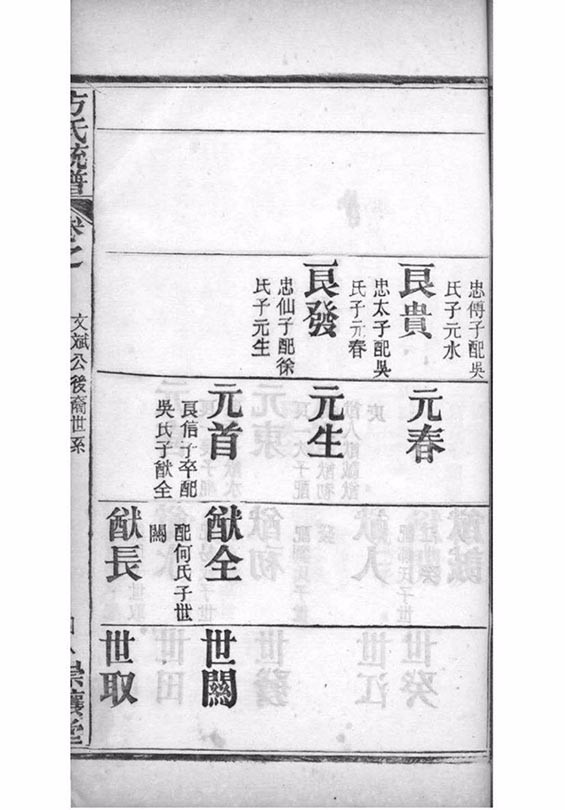 忠傅子配吳
氏子元水
良貴
忠太子配吳
氏子元春
良發
忠仙子配徐
氏子元生
元春
元生
元首
良信子卒配
吳氏子猷全
猷全
配何氏子世
闗
猷長
世闗
世取
方氏統譜
卷之
文斌公後裔世系
崇讓堂